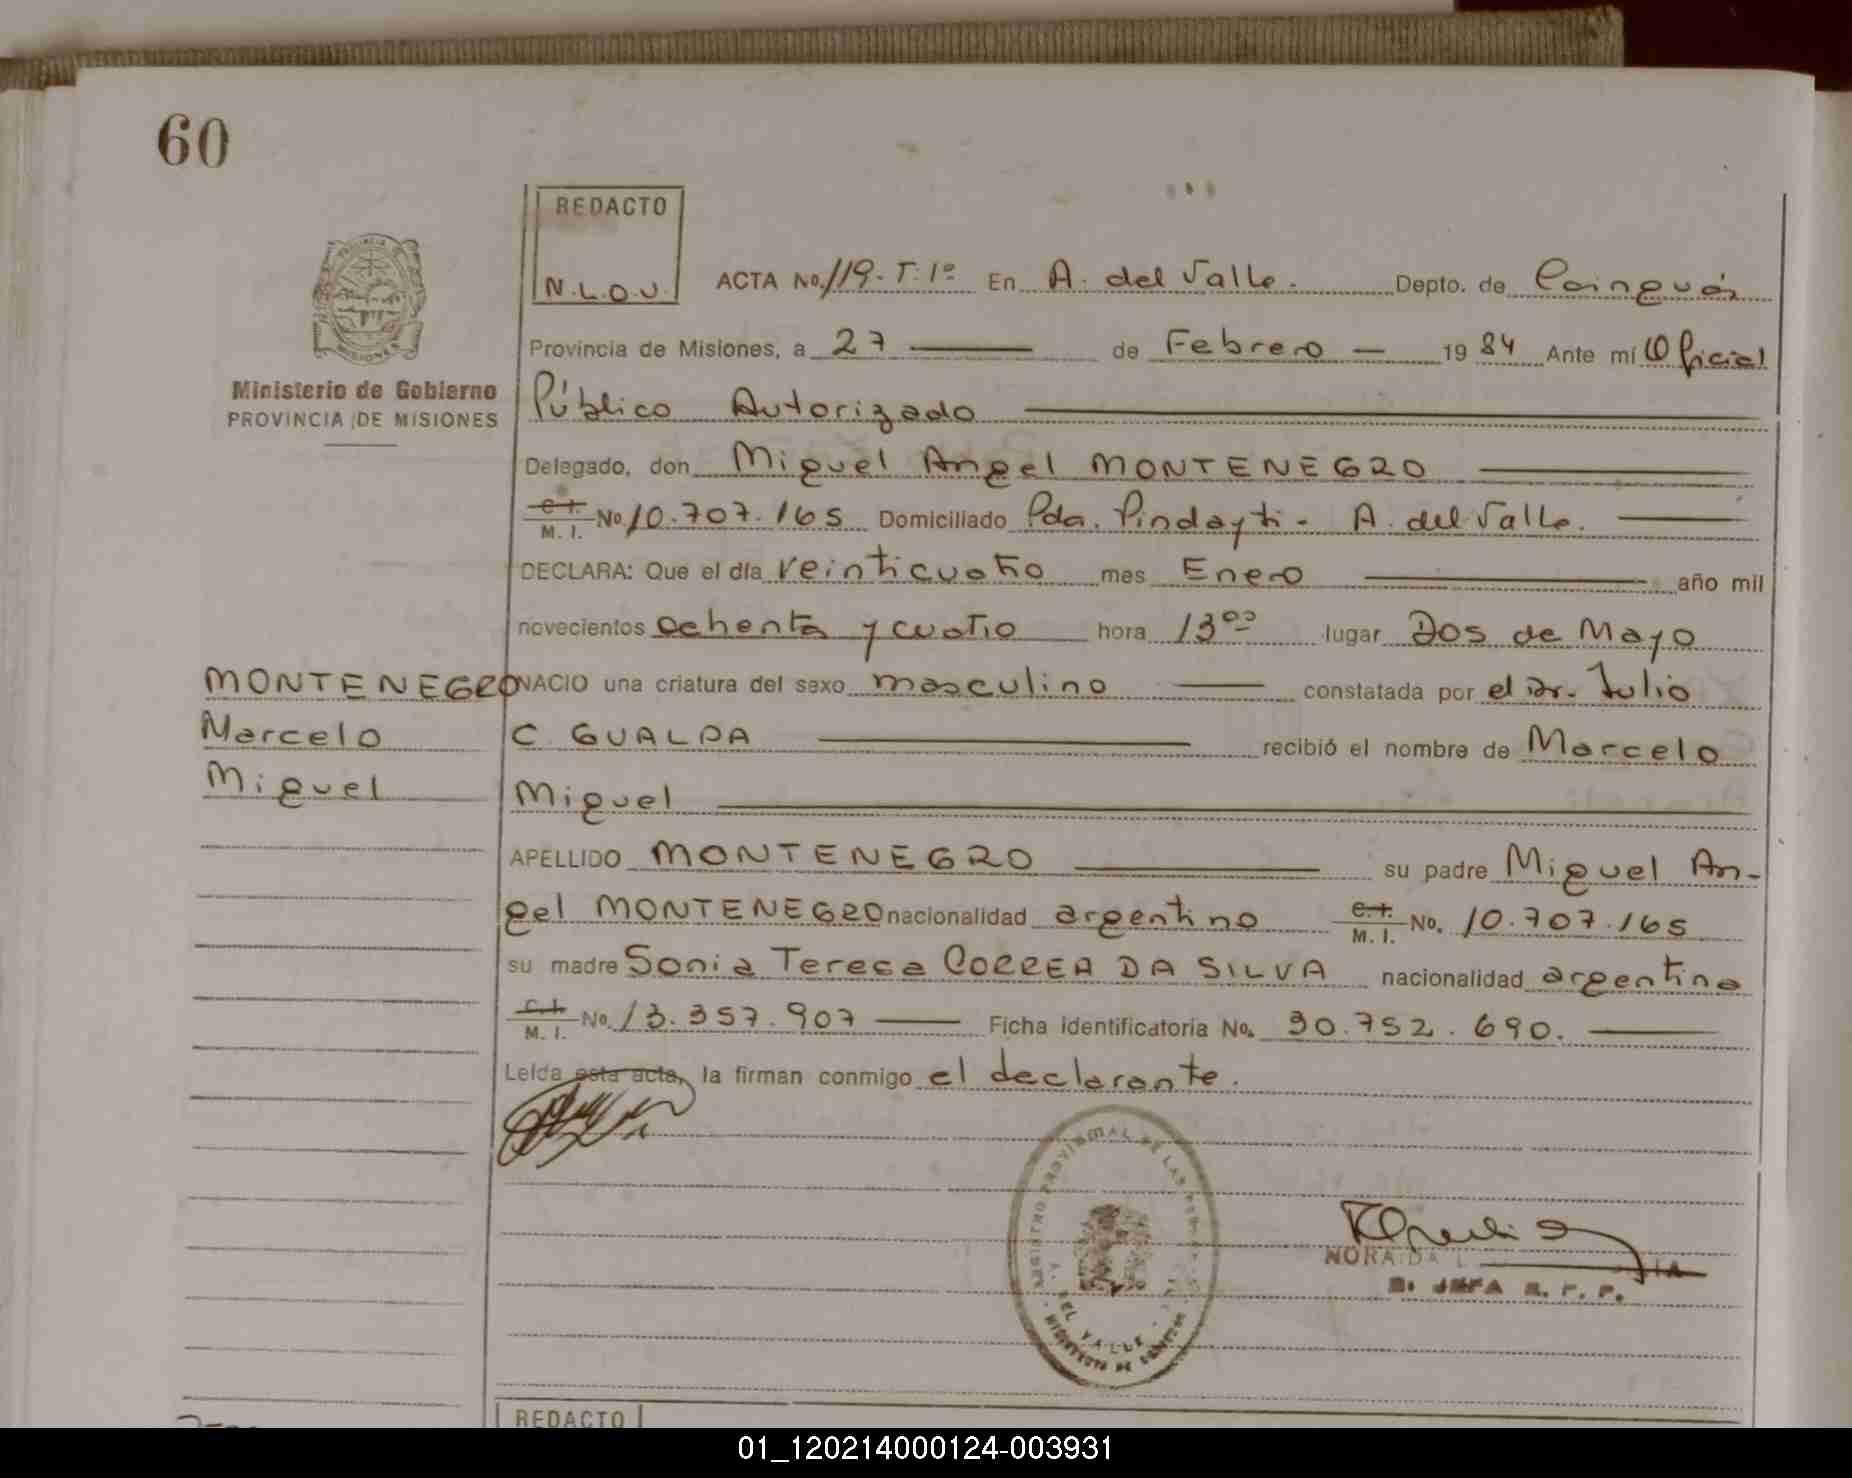 60
REDACTO
N.L.O.U.
ACTA No. 119. T: 1º En A. del Valle. Depto. de Cainguás
Ministerio de Gobierno
PROVINCIA DE MISIONES
Provincia de Misiones, a 27 de Febrero 1984 Ante mí Oficial
Público Autorizado
Delegado, don Miguel Angel MONTENEGRO
C. I. M. I. No 10.707.165 Domiciliado Pda. Pindayti - A. del Valle.
DECLARA: Que el día veinticuatro mes Enero año mil
novecientos ochenta y cuatro hora 13⁰⁰ lugar Dos de Mayo
MONTENEGRO NACIO una criatura del sexo masculino constatada por el Dr. Julio
Marcelo C. GUALDA recibió el nombre de Marcelo
Miguel Miguel
APELLIDO MONTENEGRO su padre Miguel An-
gel MONTENEGRO nacionalidad argentino C. I. M. I. No. 10.707.165
su madre Sonia Teresa CORREA DA SILVA nacionalidad argentina
C. I. M. I. No. 13.357.907 Ficha identificatoria No. 30.752.690.
Leída esta acta, la firman conmigo el declarante.
REGISTRO PROVINCIAL DE LAS PERSONAS
A. DEL VALLE
NORA
JEFA R. P. P.
REDACTO
01_120214000124-003931